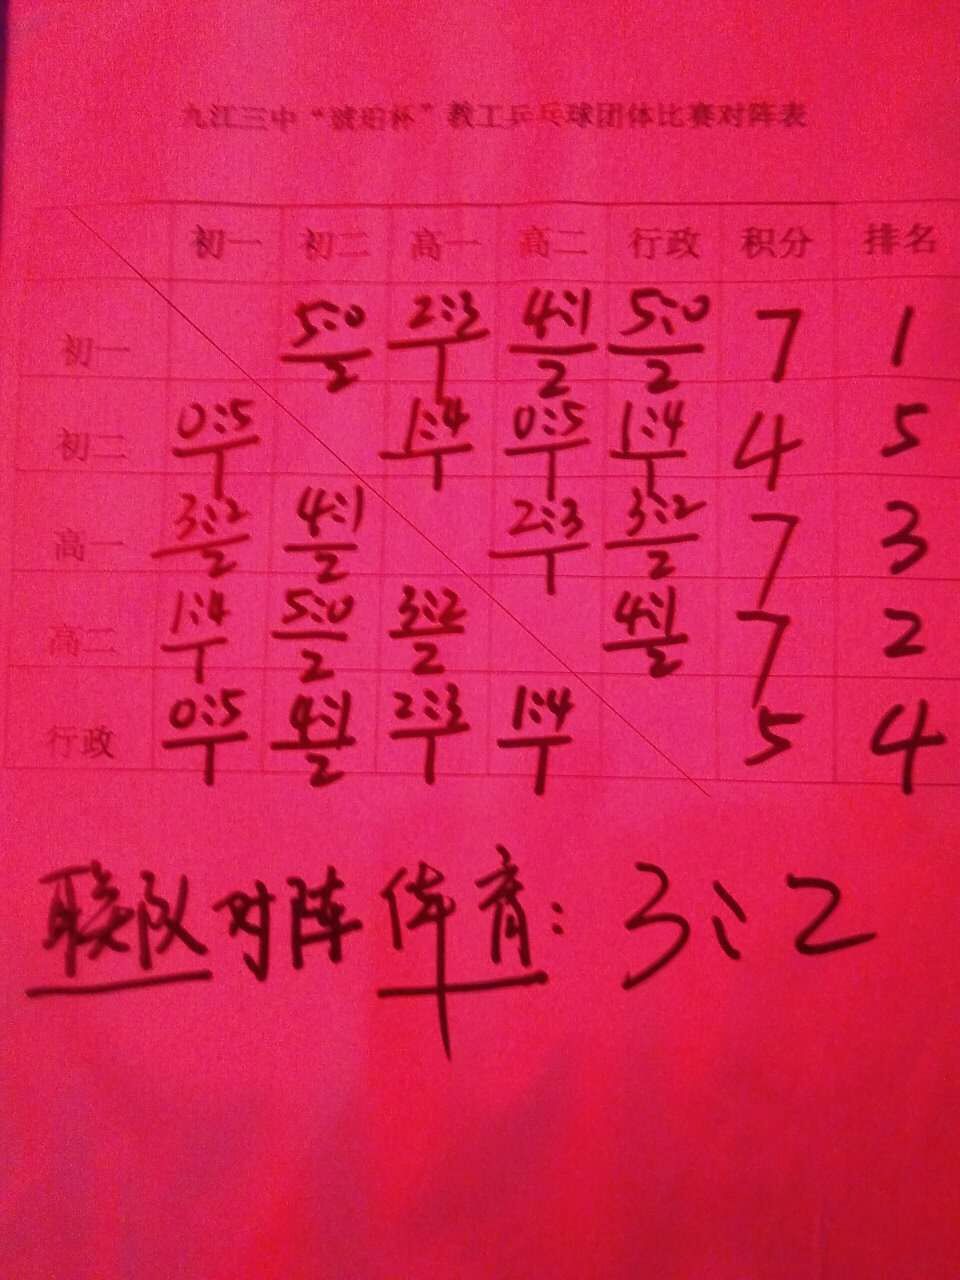 九江三中“琥珀杯”教工乒乓球团体比赛对阵表
初一 初二 高一 高二 行政 积分 排名
初一 5:0/2 2:3/1 4:1/2 5:0/2 7 1
初二 0:5/1 1:4/1 0:5/1 1:4/1 4 5
高一 3:2/2 4:1/2 2:3/1 3:2/2 7 3
高二 1:4/1 5:0/2 3:2/2 4:1/2 7 2
行政 0:5/1 4:1/2 2:3/1 1:4/1 5 4
联队对阵体育:3:2